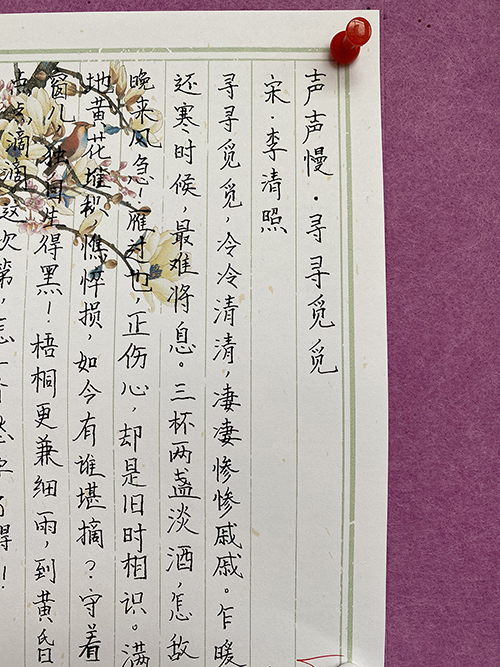 声声慢·寻寻觅觅
宋·李清照
寻寻觅觅，冷冷清清，凄凄惨惨戚戚。乍暖
还寒时候，最难将息。三杯两盏淡酒，怎敌
晚来风急！雁过也，正伤心，却是旧时相识。满
地黄花堆积，憔悴损，如今有谁堪摘？守着
窗儿，独自生得黑！梧桐更兼细雨，到黄昏
点点滴滴。这次第，怎一个愁字了得！